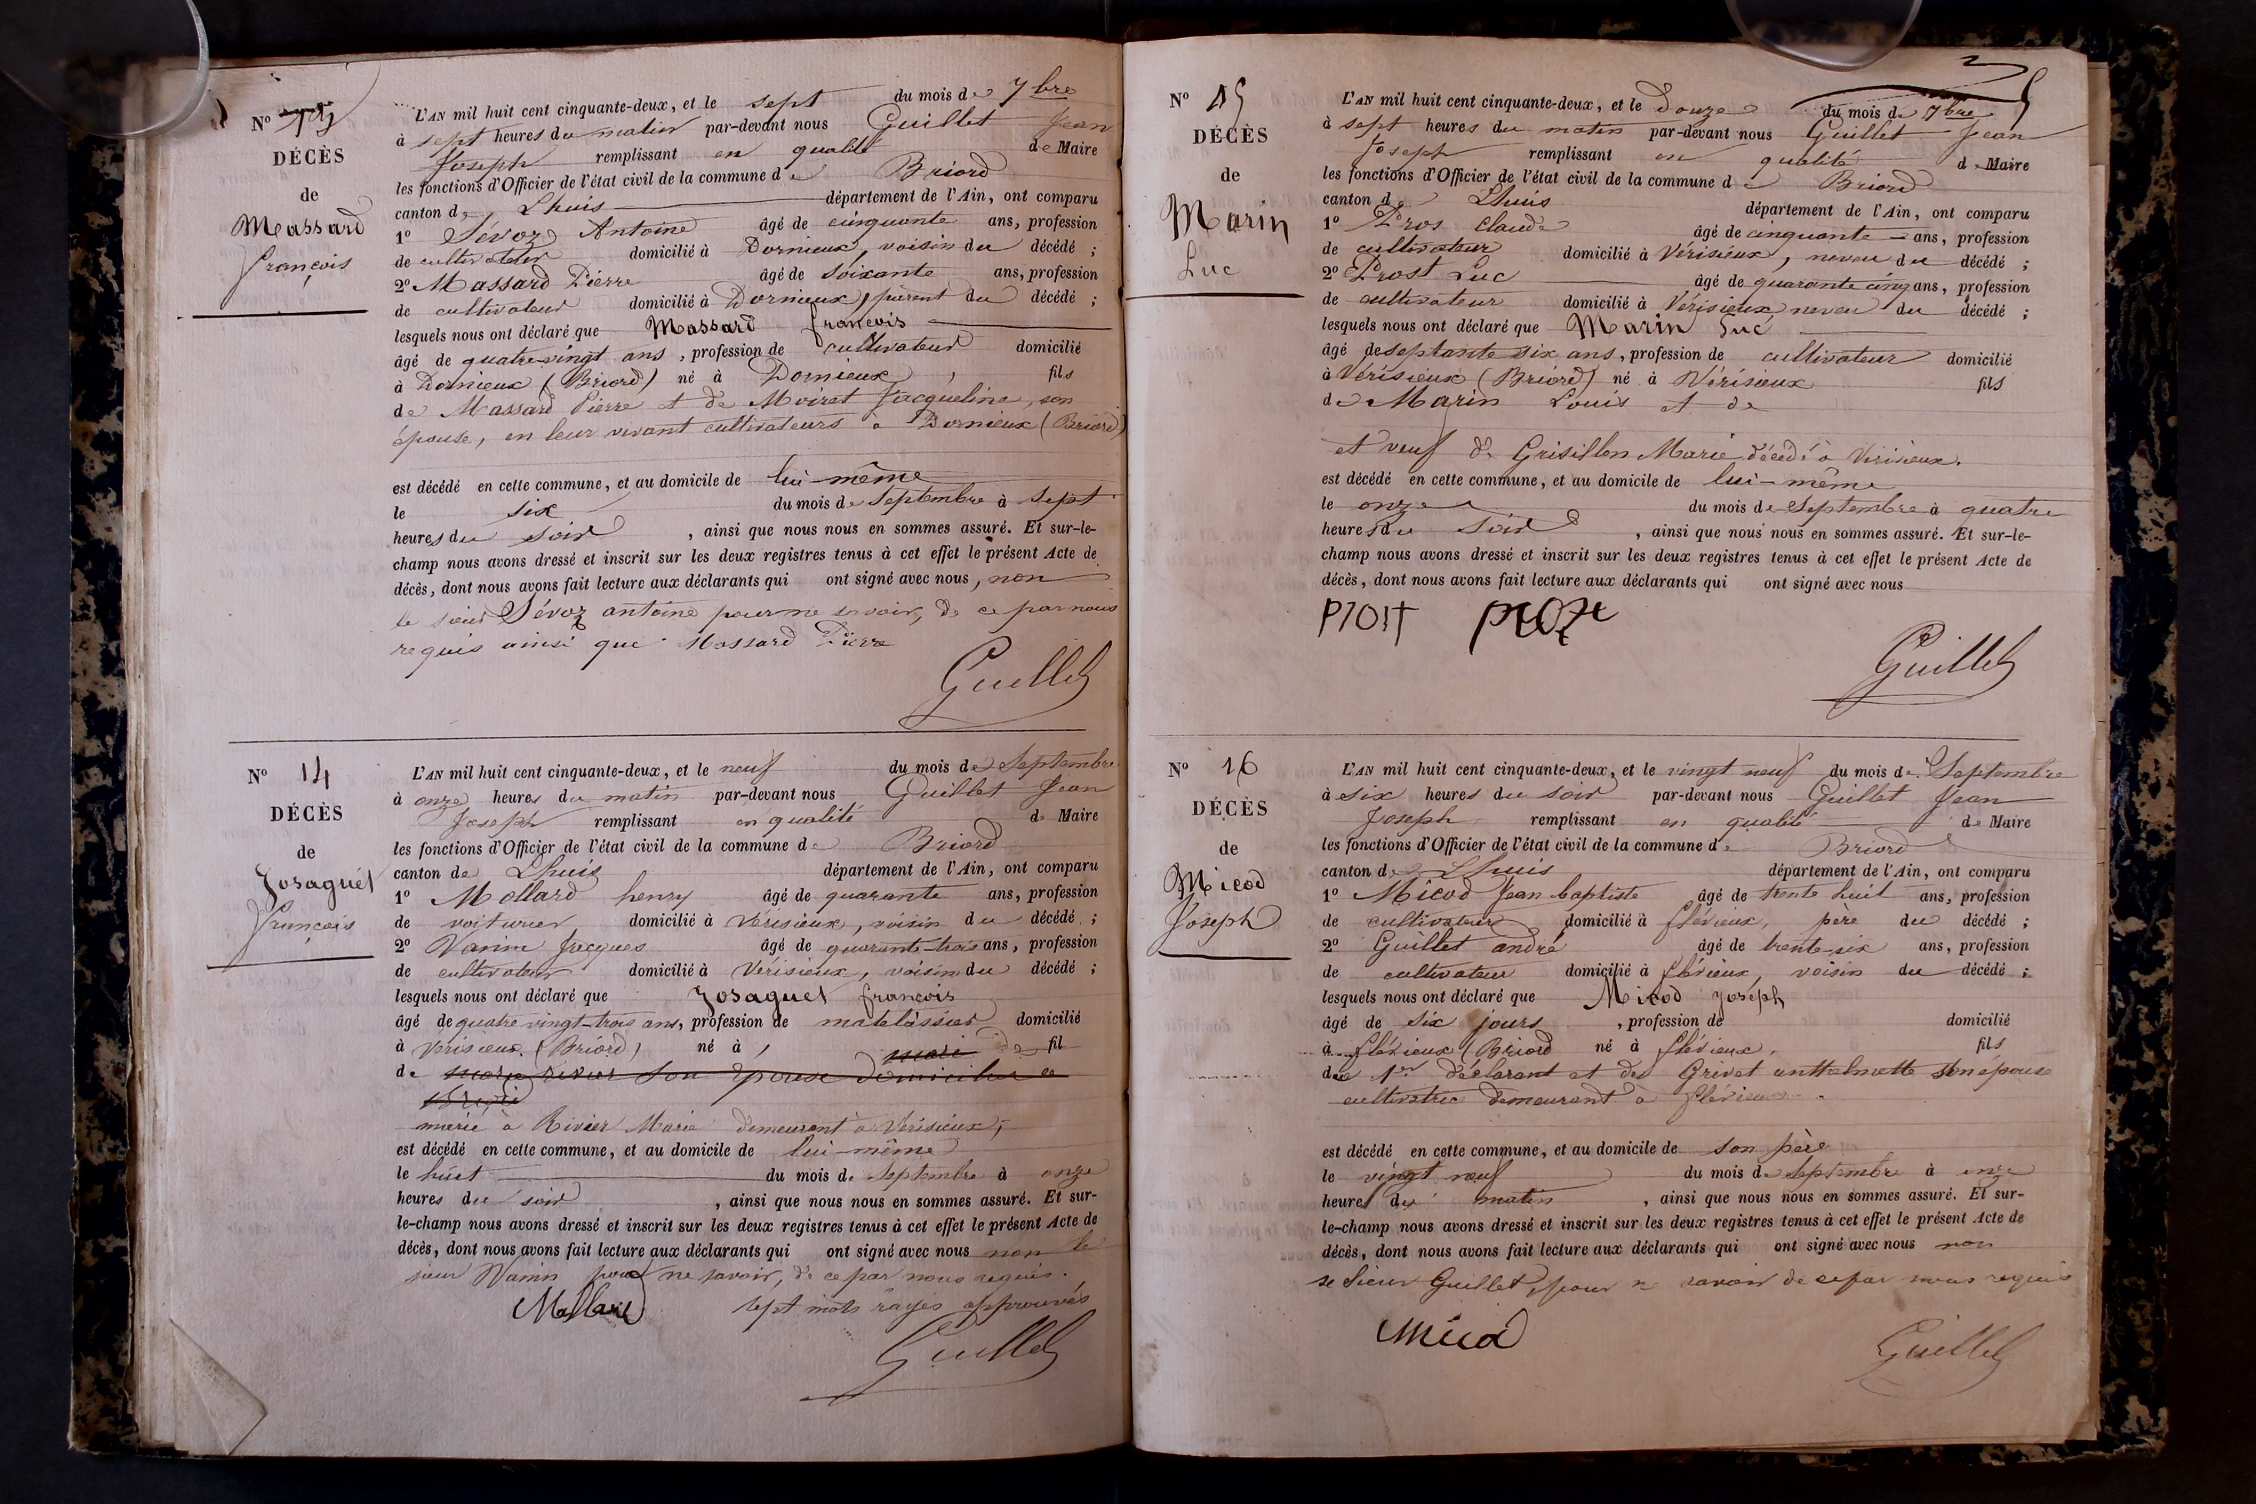 Nº
DÉCÈS
de
Massard
françois
L'AN mil huit cent cinquante-deux, et le sept du mois de 7bre
à sept heures du matin par-devant nous Guillet Jean
Joseph remplissant en qualité de Maire
les fonctions d'Officier de l'état civil de la commune de Briord
canton de Lhuis département de l'Ain, ont comparu
1º Sévoz Antoine âgé de cinquante ans, profession
de cultivateur domicilié à Dornieux, voisin du décédé ;
2º Massard Pierre âgé de soixante ans, profession
de cultivateur domicilié à Dornieux, parent du décédé ;
lesquels nous ont déclaré que Massard francois
âgé de quatre-vingt ans, profession de cultivateur domicilié
à Dornieux (Briord) né à Dornieux, fils
de Massard Pierre et de Moiret Jacqueline, son
épouse, en leur vivant cultivateurs à Dornieux (Briord)
est décédé en cette commune, et au domicile de lui-même
le six du mois de Septembre à sept
heures du soir, ainsi que nous nous en sommes assuré. Et sur-le-
champ nous avons dressé et inscrit sur les deux registres tenus à cet effet le présent Acte de
décès, dont nous avons fait lecture aux déclarants qui ont signé avec nous, non
le sieur Sévoz antoine pour ne savoir, de ce par nous
requis ainsi que Massard Pierre
Guillet
Nº 14
DÉCÈS
de
Josaguet
françois
L'AN mil huit cent cinquante-deux, et le neuf du mois de Septembre
à onze heures du matin par-devant nous Guillet Jean
Joseph remplissant en qualité de Maire
les fonctions d'Officier de l'état civil de la commune de Briord
canton de Lhuis département de l'Ain, ont comparu
1º Mollard henry âgé de quarante ans, profession
de voiturier domicilié à Vérisieux, voisin du décédé ;
2º Vanin Jacques âgé de quarante-trois ans, profession
de cultivateur domicilié à Vérisieux, voisin du décédé ;
lesquels nous ont déclaré que Josaguet francois
âgé de quatre vingt-trois ans, profession de matelassier domicilié
à Verisieux (Briord) né à, mari de fil
de marie rivier son épouse domiciliée
marié à Rivier Marie demeurant à Verisieux,
est décédé en cette commune, et au domicile de lui-même
le huit du mois de Septembre à onze
heures du soir, ainsi que nous nous en sommes assuré. Et sur-
le-champ nous avons dressé et inscrit sur les deux registres tenus à cet effet le présent Acte de
décès, dont nous avons fait lecture aux déclarants qui ont signé avec nous non le
sieur Vanin pour ne savoir, de ce par nous requis.
Mollard sept mots rayés approuvés
Guillet
Nº 15
DÉCÈS
de
Marin
Luc
L'AN mil huit cent cinquante-deux, et le Douze du mois de 7bre
à sept heures du matin par-devant nous Guillet Jean
Joseph remplissant en qualité de Maire
les fonctions d'Officier de l'état civil de la commune de Briord
canton de Lhuis département de l'Ain, ont comparu
1º Pros claude âgé de cinquante ans, profession
de cultivateur domicilié à Vérisieux, neveu du décédé ;
2º Prost Luc âgé de quarante cinq ans, profession
de cultivateur domicilié à Vérisieux neveu du décédé ;
lesquels nous ont déclaré que Marin Luc
âgé de septante six ans, profession de cultivateur domicilié
à Vérisieux (Briord) né à Vérisieux fils
de Marin Louis et de
et veuf de Grisillon Marie décédé à Virisieux.
est décédé en cette commune, et au domicile de lui-même
le onze du mois de Septembre à quatre
heures du soir, ainsi que nous nous en sommes assuré. Et sur-le-
champ nous avons dressé et inscrit sur les deux registres tenus à cet effet le présent Acte de
décès, dont nous avons fait lecture aux déclarants qui ont signé avec nous
Guillet
Nº 16
DÉCÈS
de
Micod
Joseph
L'AN mil huit cent cinquante-deux, et le vingt neuf du mois de Septembre
à six heures du soir par-devant nous Guillet Jean
Joseph remplissant en qualité de Maire
les fonctions d'Officier de l'état civil de la commune de Briord
canton de Lhuis département de l'Ain, ont comparu
1º Micod Jean baptiste âgé de trente huit ans, profession
de cultivateur domicilié à flévieux, père du décédé ;
2º Guillet andré âgé de trente-six ans, profession
de cultivateur domicilié à flévieux, voisin du décédé ;
lesquels nous ont déclaré que Micod Joseph
âgé de six jours, profession de domicilié
à flévieux (Briord né à flévieux, fils
du 1er déclarant et de Grivet anthelmette son épouse
cultivatrice demeurant à flévieux.
est décédé en cette commune, et au domicile de son père
le vingt neuf du mois de Septembre à onze
heures du matin, ainsi que nous nous en sommes assuré. Et sur-
le-champ nous avons dressé et inscrit sur les deux registres tenus à cet effet le présent Acte de
décès, dont nous avons fait lecture aux déclarants qui ont signé avec nous non
le Sieur Guillet, pour ne savoir de ce par nous requis
Micod
Guillet